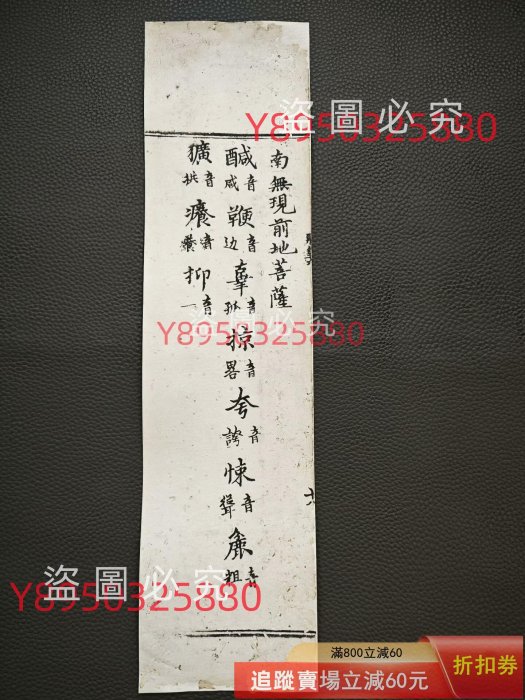 南無現前地菩薩
醎音咸 鞭音边 辜音 掠音畧 夸音誇 悚音聳 麁音粗
獷音 癢音 抑音
盜圖必究
Y8950325880
盜圖必究
Y8950325880
盜圖必究
Y8950325880
滿800立減60
追蹤賣場立減60元
折扣券